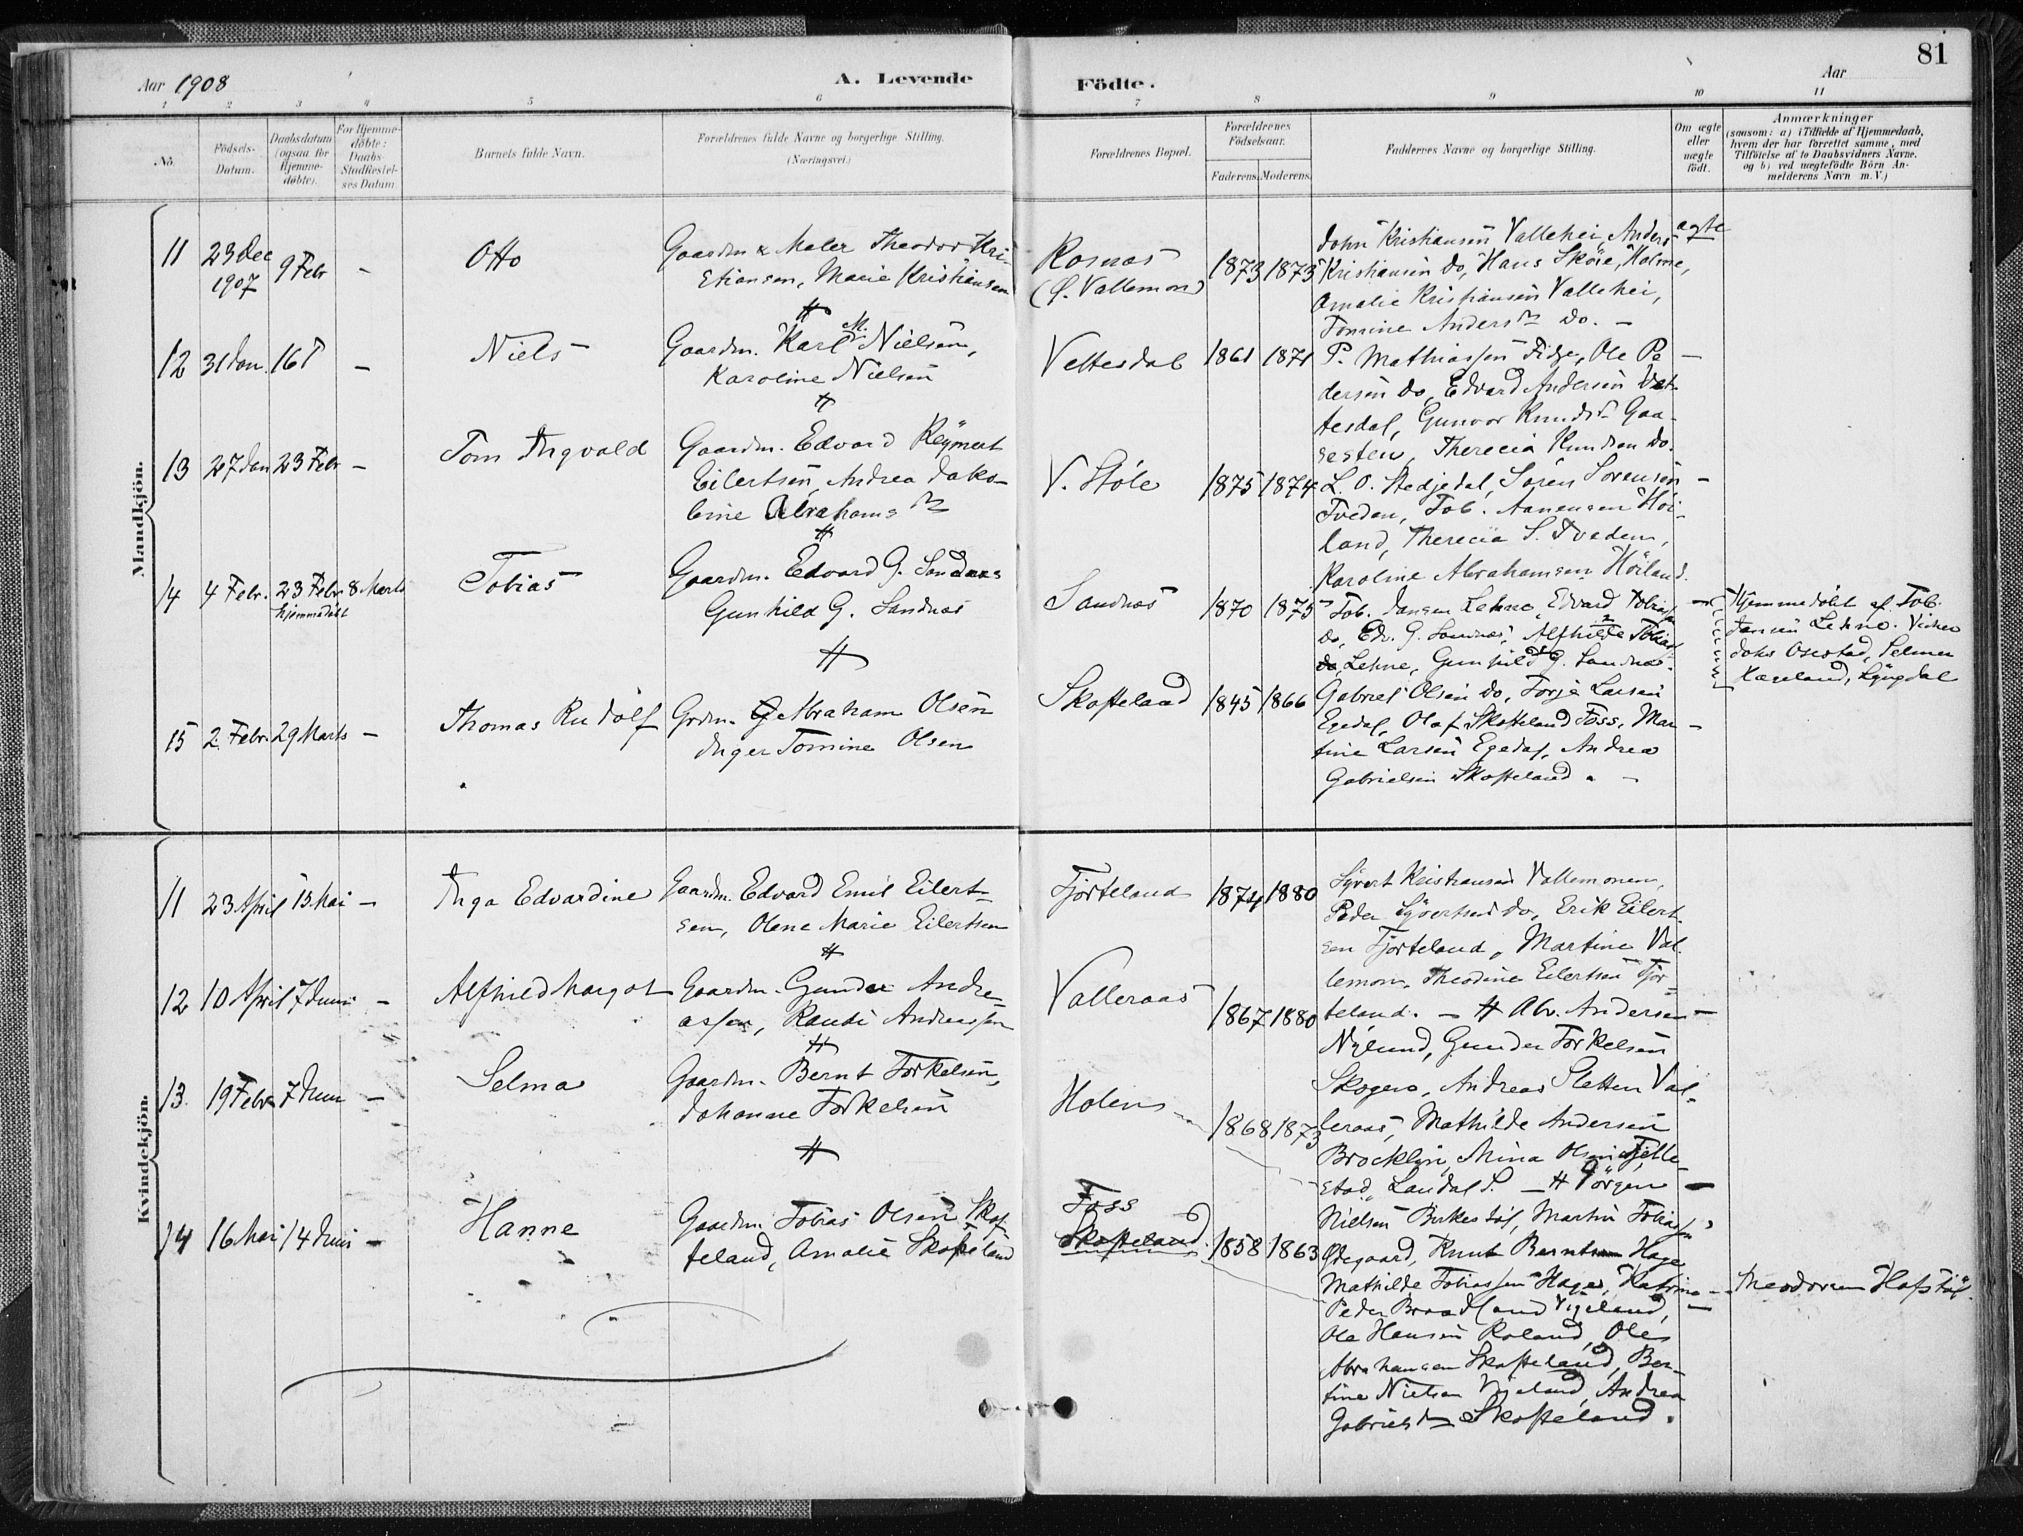 81
Aar 1908
A. Levende
Födte.
Aar
1 2 3 4 5 6 7 8 9 10 11
No.
Födsels-
Datum.
Daabsdatum
(ogsaa for
Hjemme-
døbte).
For Hjemme-
døbte:
Daabs-
Stadfæstel-
ses Datum
Barnets fulde Navn.
Forældrenes fulde Navne og borgerlige Stilling.
(Næringsvei.)
Forældrenes Bopæl.
Forældrenes
Födselsaar.
Faderens. Moderens.
Faddernes Navne og borgerlige Stilling.
Om ægte
eller
uægte
födt.
Anmærkninger
(saasom: a) i Tilfælde af Hjemmedaab,
hvem der har forrettet samme, med
Tilföielse af to Daabsvidners Navne.
og b) ved uægtefödte Börn An-
melderens Navn m. V.)
Mandkjön.
11 23 Dec
1907 9 Febr - Otto
Gaardm & Maler Theodor Kri-
stiansen, Marie Kristiansen
Rosnæs
(Ø. Vallemon)
1873 1873
John Kristiansen Vallehei, Anders
Kristiansen do, Hans Sköie, Holme,
Amalie Kristiansen Vallehei,
Tomine Anders do. -
ægte
12 31 Jan. 16 - Niels
Gaardm. Karl M. Nielsen,
Karoline Nielsen
Vettesdal 1861 1871
P. Mathiassen Fidje, Ole Pe-
dersen do, Edvard Andersen Vet-
tesdal, Gunvor Knuds Gaa-
sesten, Therecia Knudsen do.
-
13 27 Jan 23 Febr - Tom Ingvald
Gaardm. Edvard Reÿnert
Eilertsen, Andrea Jako-
bine Abrahams
V. Støle 1875 1874
L. O. Stedjedal, Sören Sorensen
Tveden, Tob. Aanensen Höi-
land, Therecia S. Tveden,
Karoline Abrahamsen Höiland.
-
14 4 Febr. 23 Febr 8 Marts
hjemmedøbt
Tobias
Gaardm. Edvard G. Sandnæs
Gunhild G. Sandnæs
Sandnæs 1870 1875
Tob. Jansen Lehne, Edvard Tobias
do, Edv. G. Sandnæs, Alfhilde Tobias
Lehne, Gunhild G. Sandnæs.
Hjemmedøbt af Tob.
Jansen Lehne. Vidner
Jakob Osestad, Selmer
Kaseland, Lÿngdal
15 2. Febr. 29 Marts - Thomas Rudolf
Grdm. Abraham Olsen
Inger Tomine Olsen
Skofteland 1845 1866
Gabriel Olsen do, Torje Larsen
Egedal, Olaf Skofteland Foss, Mar-
tine Larsen Egedal, Andrea
Gabrielsen Skofteland. -
Kvindekjön.
11 23 April 13 Mai - Inga Edvardine
Gaardm. Edvard Emil Eilert-
sen, Olene Marie Eilertsen
Fjorteland 1874 1880
Syvert Kristiansen Vallemonen,
Peder Syvertsen do, Erik Eilert-
sen Fjorteland, Martine Val-
lemon, Theodine Eilertsen Fjor-
teland. -
12 10 April 7 Juni - Alfhild Margot
Gaardm. Gunder Andre-
assen, Randi Andreassen
Valleraas 1867 1880
Abr. Andersen
Nÿlund, Gunder Torkelsen
Skogen, Andreas Sletten Val-
leraas, Mathilde Andersen
Brocklÿn, Mina Olsen Fjelle-
stad, Landal S. -
13 19 Febr 7 Juni - Selma
Gaardm. Bernt Torkelsen,
Johanne Torkelsen
Holem 1868 1873
Jörgen
Nielsen Birkestöl, Martin Tobias
Ødegaard, Knut Berntsen Hage
Mathilde Tobiassen Hage, Katrine
Theodorsen Hafstöl.
14 16 Mai 14 Juni - Hanne
Gaardm. Tobias Olsen Skof-
teland, Amalie Skofteland
Foss
Skofteland 1858 1863
Peder Braadland Vigeland,
Ole Hansen Roland, Oles
Abrahamsen Skofteland, Ber-
tine Nielsen Vigeland, Andrea
Gabriels Skofteland.